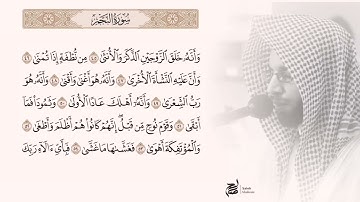 سُورَةُ النَّجْمِ
وَأَنَّهُۥ خَلَقَ ٱلزَّوْجَيْنِ ٱلذَّكَرَ وَٱلْأُنثَىٰ ٤٥ مِن نُّطْفَةٍ إِذَا تُمْنَىٰ ٤٦
وَأَنَّ عَلَيْهِ ٱلنَّشْأَةَ ٱلْأُخْرَىٰ ٤٧ وَأَنَّهُۥ هُوَ أَغْنَىٰ وَأَقْنَىٰ ٤٨ وَأَنَّهُۥ هُوَ
رَبُّ ٱلشِّعْرَىٰ ٤٩ وَأَنَّهُۥٓ أَهْلَكَ عَادًا ٱلْأُولَىٰ ٥٠ وَثَمُودَا۟ فَمَآ
أَبْقَىٰ ٥١ وَقَوْمَ نُوحٍ مِّن قَبْلُ ۖ إِنَّهُمْ كَانُوا۟ هُمْ أَظْلَمَ وَأَطْغَىٰ ٥٢
وَٱلْمُؤْتَفِكَةَ أَهْوَىٰ ٥٣ فَغَشَّىٰهَا مَا غَشَّىٰ ٥٤ فَبِأَىِّ ءَالَآءِ رَبِّكَ